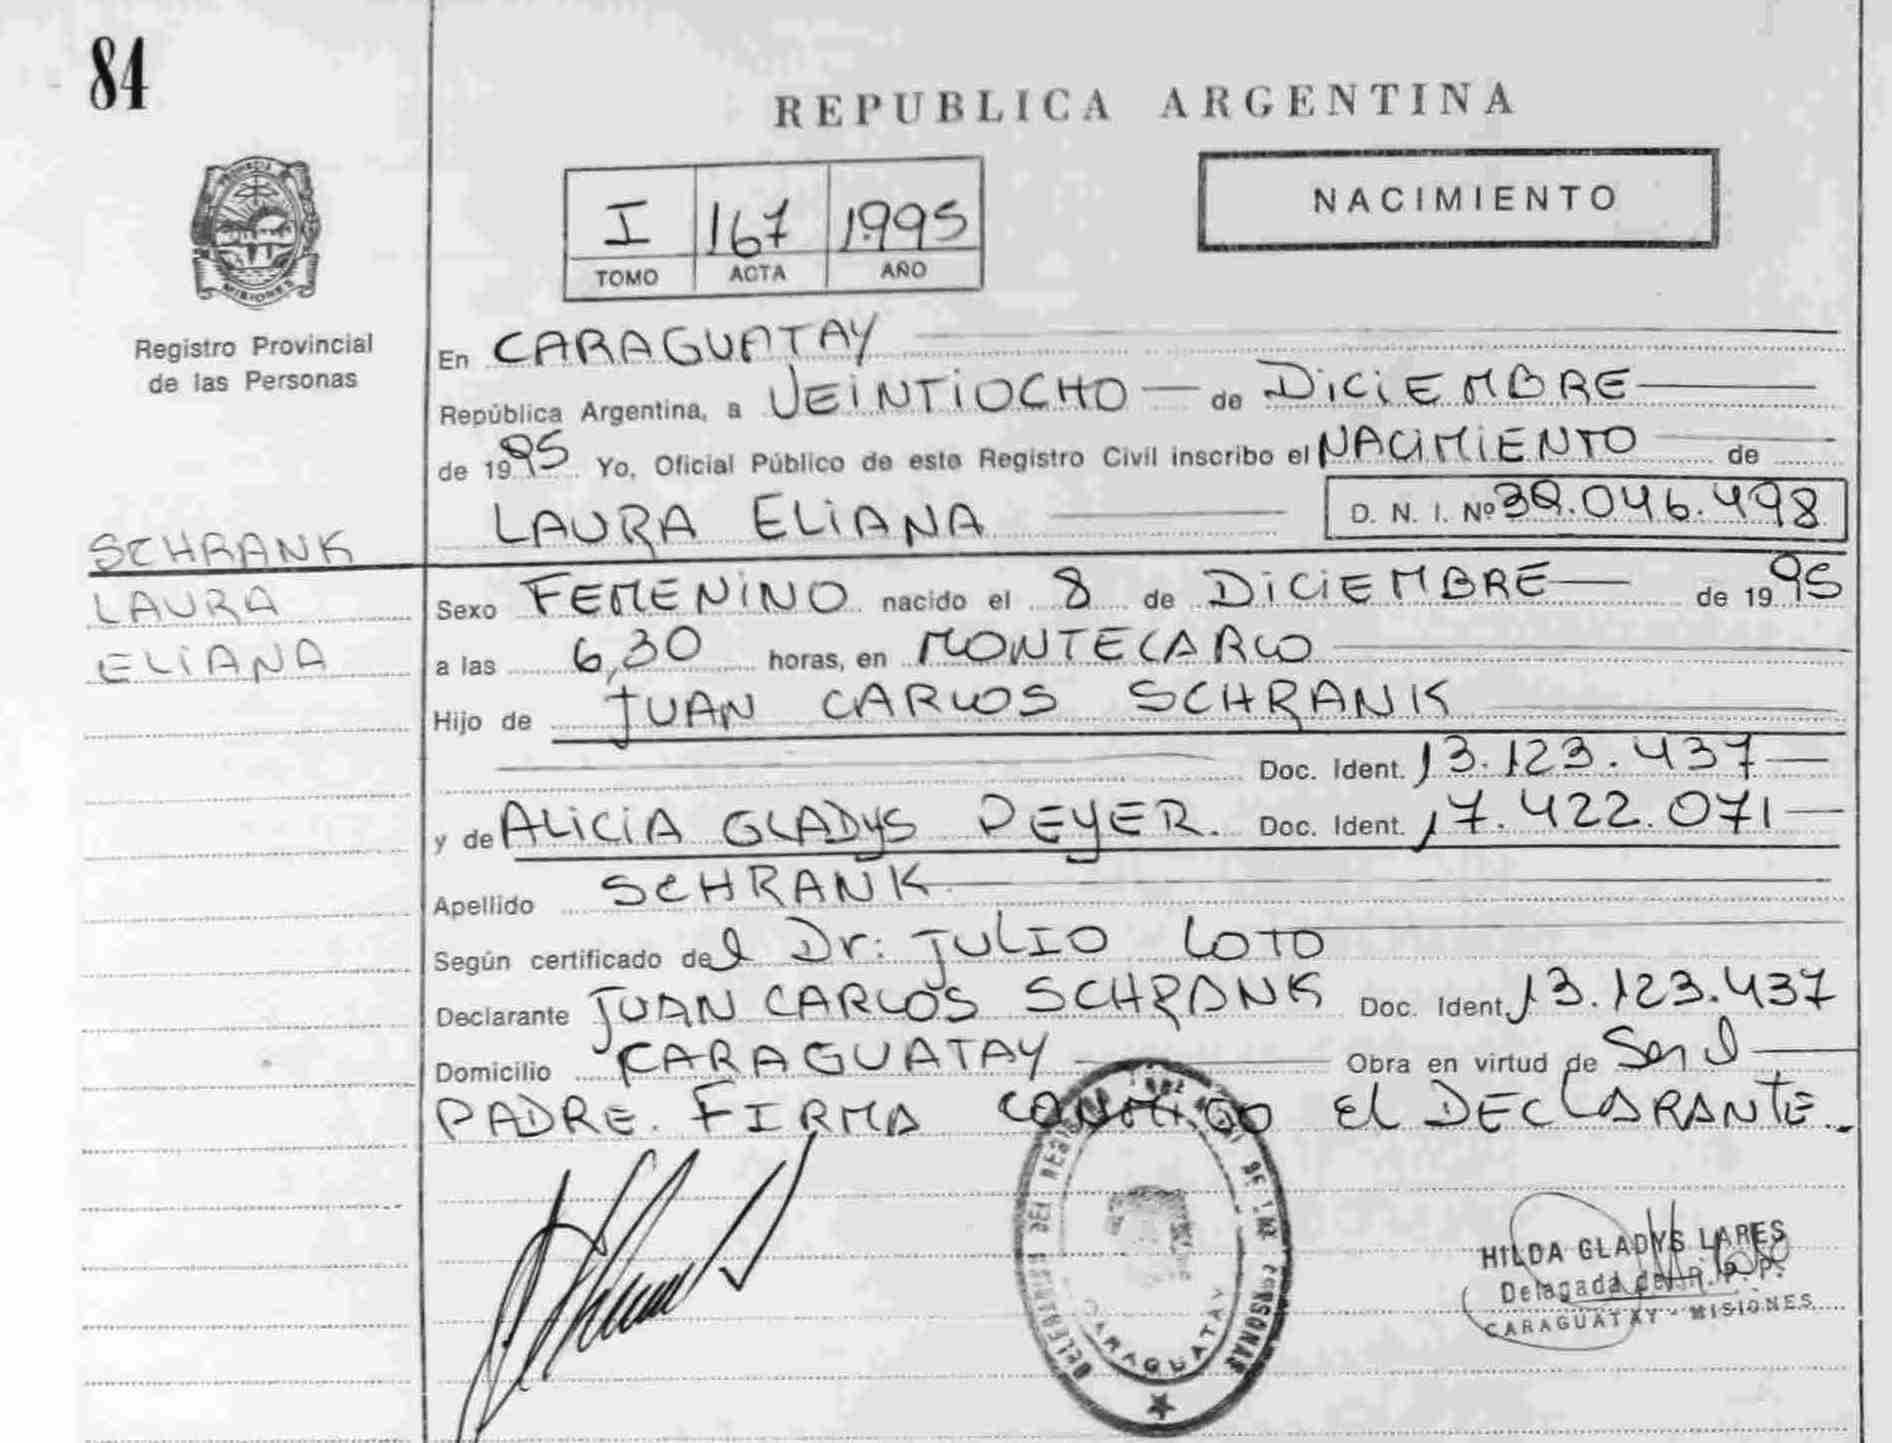 84
REPUBLICA ARGENTINA
PROVINCIA
MISIONES
Registro Provincial
de las Personas
I 167 1995
TOMO ACTA AÑO
NACIMIENTO
En CARAGUATAY
República Argentina, a VEINTIOCHO de DICIEMBRE
de 1995 Yo, Oficial Público de este Registro Civil inscribo el NACIMIENTO de
LAURA ELIANA D. N. I. Nº 39.046.498
SCHRANK
LAURA
ELIANA
Sexo FEMENINO nacido el 8 de DICIEMBRE de 1995
a las 6,30 horas, en MONTECARLO
Hijo de JUAN CARLOS SCHRANK
Doc. Ident. 13.123.437
y de ALICIA GLADYS DEYER. Doc. Ident. 17.422.071
Apellido SCHRANK
Según certificado del Dr: JULIO LOTO
Declarante JUAN CARLOS SCHRANK Doc. Ident. 13.123.437
Domicilio CARAGUATAY Obra en virtud de Ser el
PADRE. FIRMA CONMIGO El DECLARANTE.
DE LAS PERSONAS
CARAGUATAY
HILDA GLADYS LARES
Delegada del R. P. P.
CARAGUATAY - MISIONES